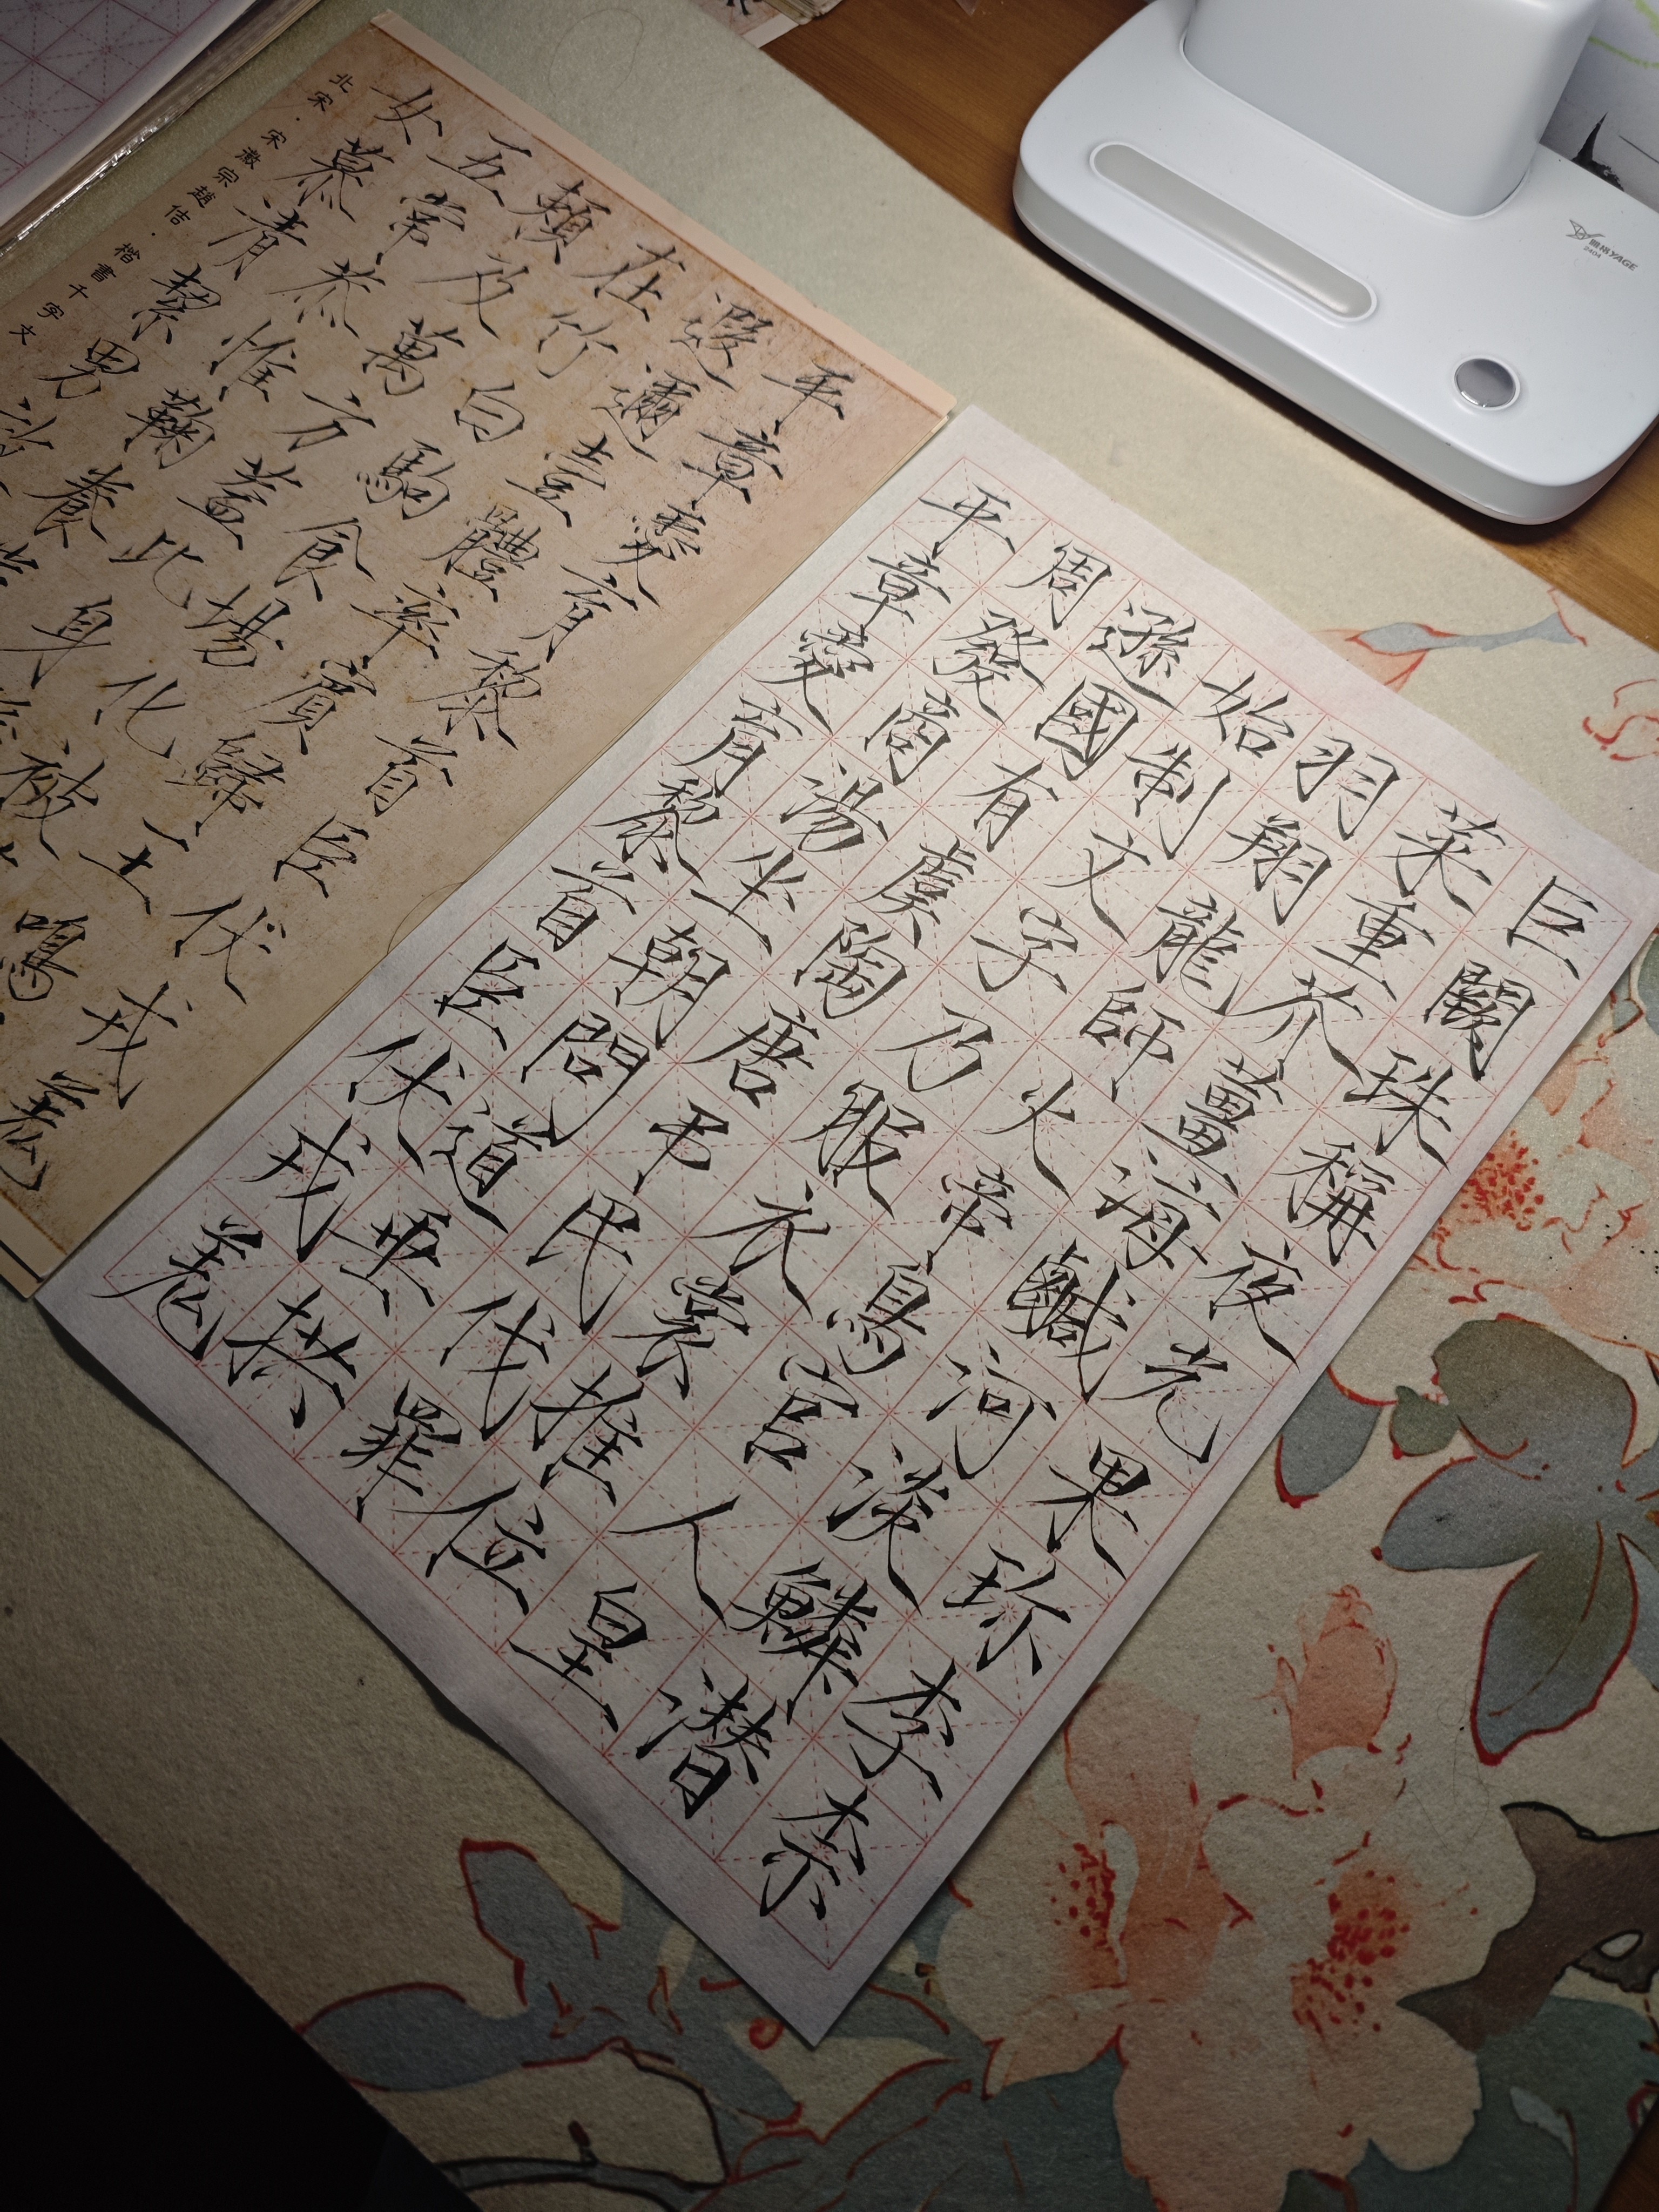 巨闕珠稱夜光果珍李柰
菜重芥薑海鹹河淡鱗潛
羽翔龍師火帝鳥官人皇
始制文字乃服衣裳推位
遜國有虞陶唐弔民伐罪
周發商湯坐朝問道垂拱
平章愛育黎首臣伏戎羌
平章愛育黎首臣伏戎羌
遐邇壹體率賓歸王鳴
在竹白駒食場化被
賴及萬方蓋此身
五常恭惟鞠養
女慕清絜男效
北宋·宋徽宗趙佶·楷書千字文
雅格YAGE